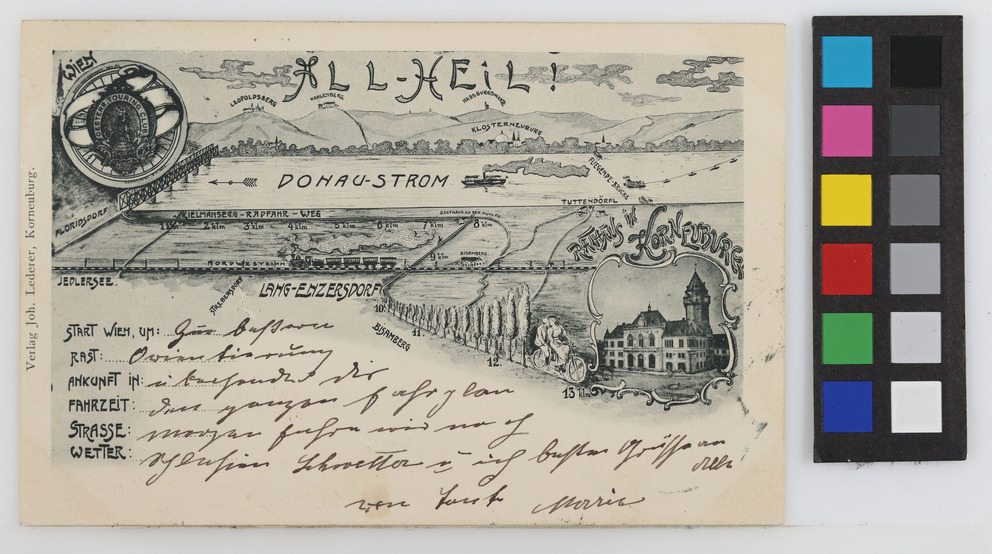 WIEN
ALL-HEIL!
OESTERR. TOURING CLUB
LEOPOLDSBERG
KAHLENBERG
HABSBURGWARTE
KLOSTERNEUBURG
DONAU-STROM
FLIEGENDE-BRÜCKE
TUTTENDÖRFL
FLORIDSDORF
KIELMANSEGG-RADFAHR-WEG
GASTHAUS AN DEN MÜHLEN
1 klm 2 klm 3 klm 4 klm 5 klm 6 klm 7 klm 8 klm
9 klm
BISAMBERG
NORDWESTBAHN
JEDLERSEE
STREBERSDORF
LANG-ENZERSDORF
10.
11
BISAMBERG
12.
13 klm
RATHAUS IN KORNEUBURG
Verlag Joh. Lederer, Korneuburg.
START WIEN, UM: Zur bessern
RAST: Orientierung
ANKUNFT IN: übersende dir
FAHRZEIT: den ganzen Fahrplan
STRASSE: morgen fahren wir nach
WETTER: Schlesien Schwester u ich besten Grüsse an
alle
von